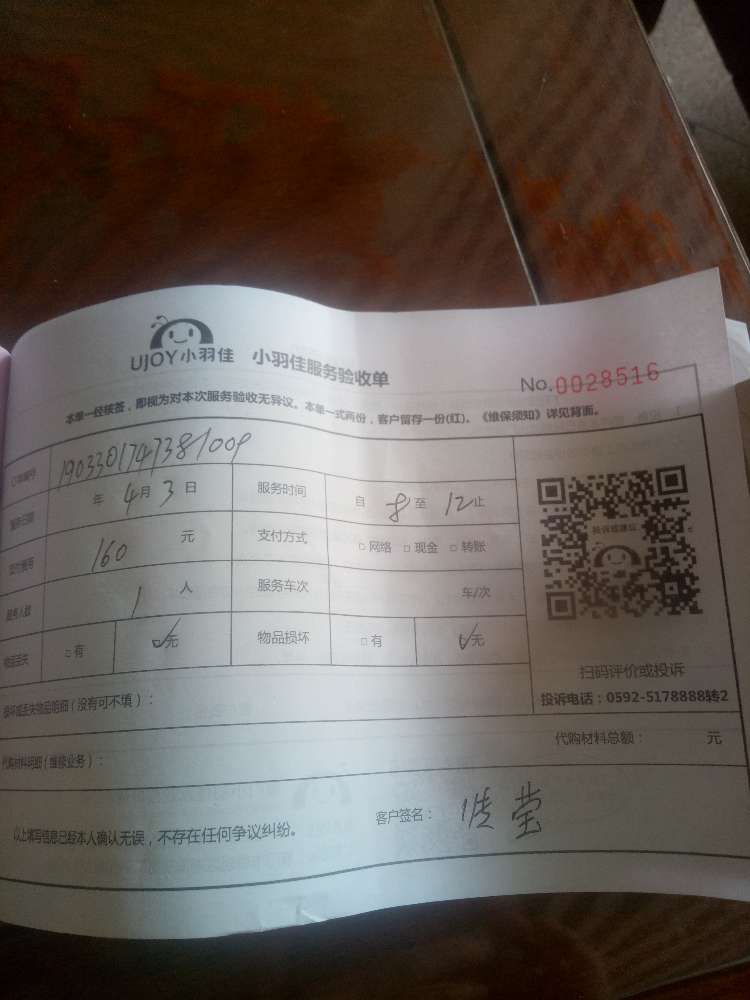 UJOY小羽佳 小羽佳服务验收单
No.0028516
本单一经核签，即视为对本次服务验收无异议。本单一式两份，客户留存一份(红)。《维保须知》详见背面。
订单编号 1903301747381009
服务日期 年 4月 3日 服务时间 自 8 至 12 止
160 元 支付方式 □网络 □现金 □转账
服务人数 1 人 服务车次 车/次
物品丢失 □有 ☑无 物品损坏 □有 ☑无
扫码评价或投诉
投诉电话：0592-5178888转2
损坏或丢失物品明细（没有可不填）：
代购材料明细（维修业务）： 代购材料总额： 元
以上填写信息已经本人确认无误，不存在任何争议纠纷。 客户签名： 莹